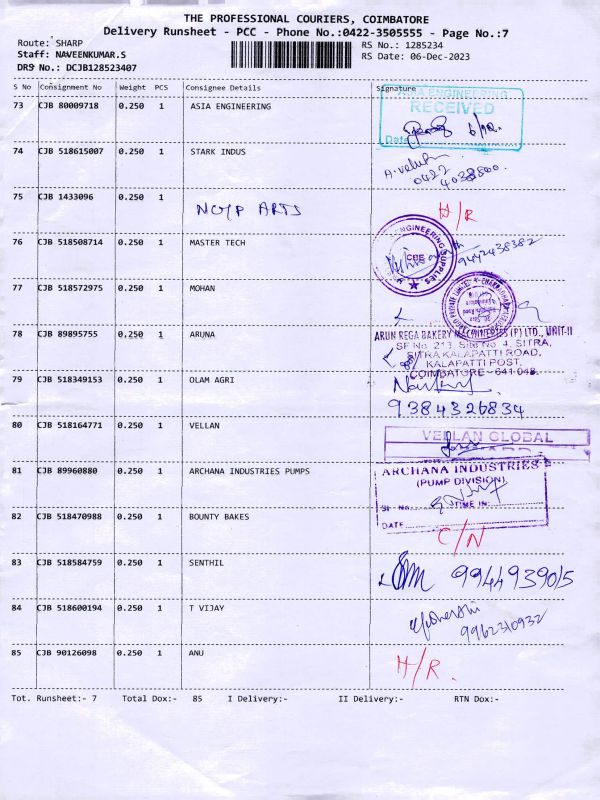 THE PROFESSIONAL COURIERS, COIMBATORE
Delivery Runsheet - PCC - Phone No.:0422-3505555 - Page No.:7
Route: SHARP
Staff: NAVEENKUMAR.S
DRS No.: DCJB128523407
RS No.: 1285234
RS Date: 06-Dec-2023
S No Consignment No Weight PCS Consignee Details Signature
73 CJB 80009718 0.250 1 ASIA ENGINEERING
ASIA ENGINEERING
RECEIVED
Date
74 CJB 518615007 0.250 1 STARK INDUS
0422
75 CJB 1433096 0.250 1 NG/P ARTS H/R
76 CJB 518508714 0.250 1 MASTER TECH
ENGINEERING SUPPLIES
CBE
9442438382
77 CJB 518572975 0.250 1 MOHAN
78 CJB 89895755 0.250 1 ARUNA
ARUN REGA BAKERY MACHINERIES (P) LTD., UNIT-II
SF No. 213, Site No. 4, SITRA,
SITRA KALAPATTI ROAD,
KALAPATTI POST,
COIMBATORE - 641 048.
79 CJB 518349153 0.250 1 OLAM AGRI
9384326834
80 CJB 518164771 0.250 1 VELLAN
VELLAN GLOBAL
81 CJB 89960880 0.250 1 ARCHANA INDUSTRIES PUMPS
ARCHANA INDUSTRIES
(PUMP DIVISION)
SL No. TIME IN:
DATE
82 CJB 518470988 0.250 1 BOUNTY BAKES C/N
83 CJB 518584759 0.250 1 SENTHIL 9944939015
84 CJB 518600194 0.250 1 T VIJAY
9962310932
85 CJB 90126098 0.250 1 ANU H/R.
Tot. Runsheet:- 7 Total Dox:- 85 I Delivery:- II Delivery:- RTN Dox:-